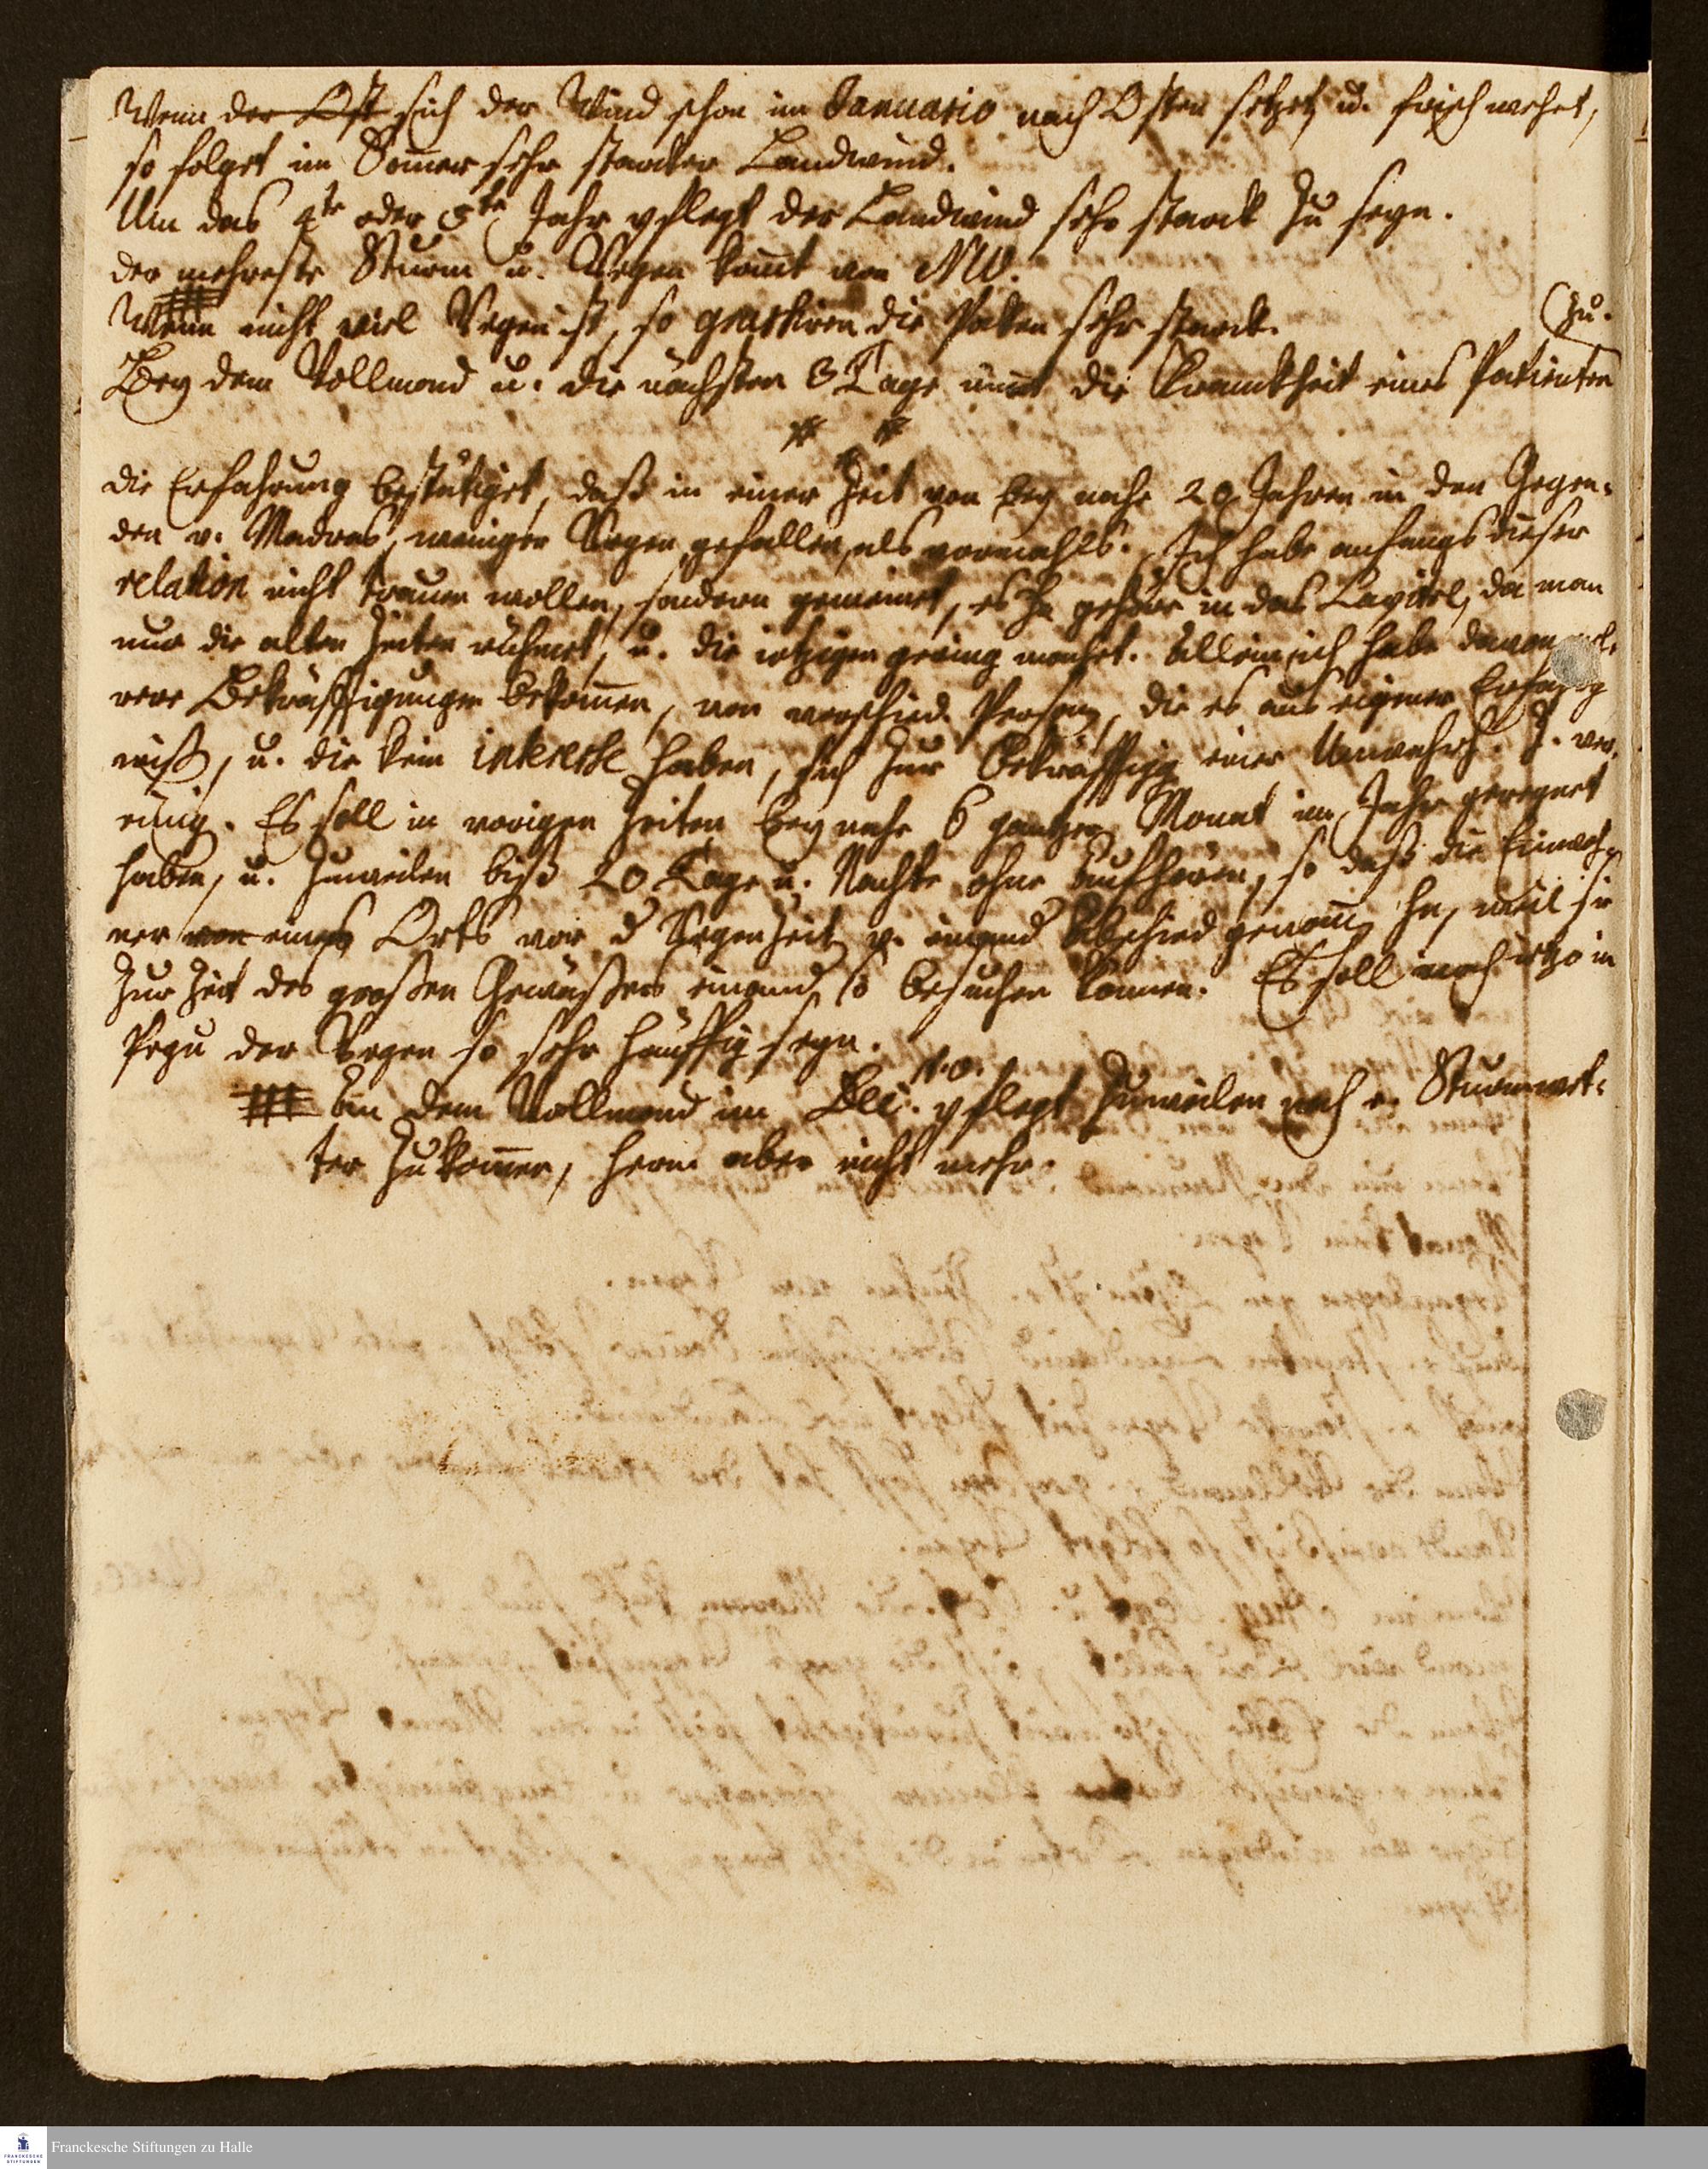 Wenn der Ost sich der Wind schon im Januario nach Osten setzet, u. frisch wehet,
so folget im Somer sehr starcker Landwind.
Um das 4te oder 5te Jahr pflegt der Landwind sehr starck zu seyn.
der mehreste Sturm u. Regen komt von NW.
Wenn nicht viel Regen ist, so grassiren die Poken sehr starck.
Bey dem Vollmond u. die nächsten 3 Tage nimt die Kranckheit eines Patienten (zu.
die Erfahrung bestätiget, daß in einer Zeit von bey nahe 20 Jahren in den Gegen-
den v. Madras, weniger Regen gefallen, als vormahls. Ich habe anfangs dieser
relation nicht trauen wollen, sondern gemeinet, es gehöre in das Capitel, da man
nur die alten Zeiten rühmet, u. die ietzigen gering machet. Allein ich habe davon
rere Bekräfftigungen bekomen, von verschied. Person, die es aus eigener
wiß, u. die kein interesse haben, sich zur Bekräfftigg einer Unwahrh. z. ver-
einig. Es soll in vorigen Zeiten bey nahe 6 gantzer Monat im Jahr geregnet
haben, u. zuweilen biß 20 Tage u. Nachte ohne Aufhören, so daß die Einwoh-
ner von eines Orts vor d Regenzeit v. einand Abschied genom, weil sie
zur Zeit des großen Gewäßers einand besuchen können. Es soll noch ietzo in
Pegu der Regen so sehr häuffig seyn.
An dem Vollmond im Dec. pflegt zuweilen noch e. Sturmwet-
ter zu komen, hernn aber nicht mehr.
Franckesche Stiftungen zu Halle